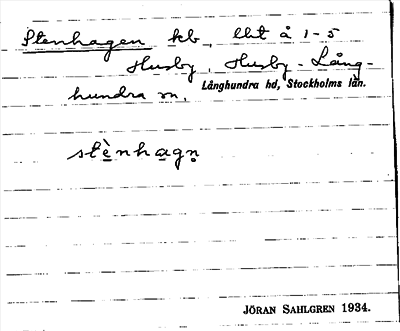 Stenhagen hb, lht å 1-5
Husby, Husby-Lång-
hundra sn.
Långhundra hd, Stockholms län.
stè̱nha̱gn̥
JÖRAN SAHLGREN 1934.